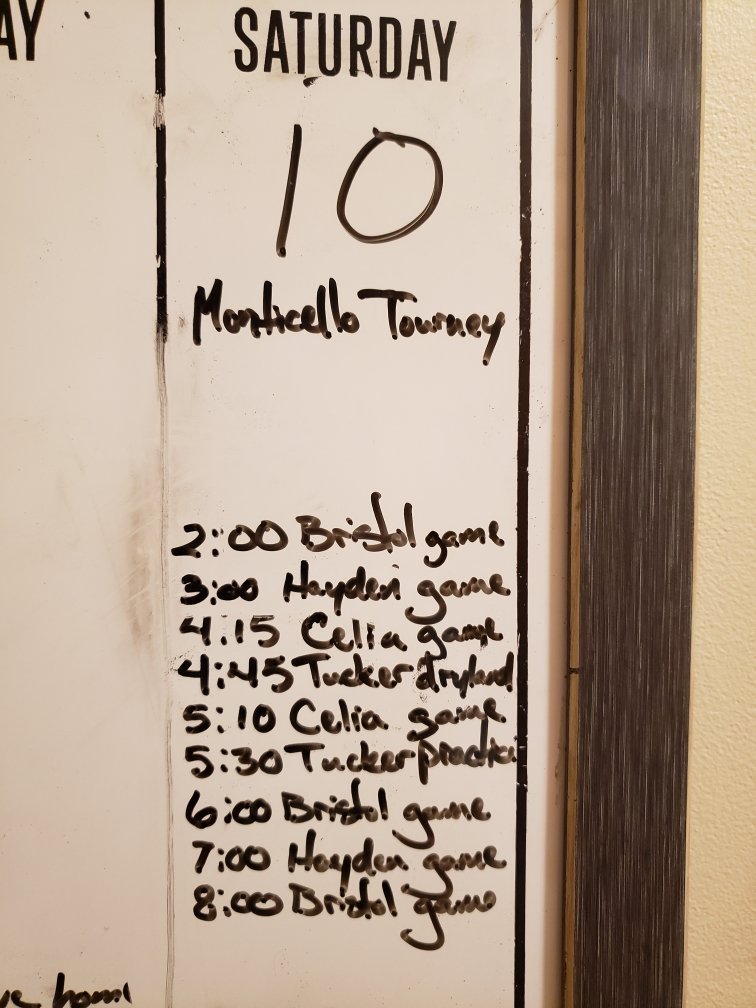 AY
SATURDAY
10
Monticello Tourney
2:00 Bristol game
3:00 Hayden game
4:15 Celia game
4:45 Tucker dryland
5:10 Celia game
5:30 Tucker practice
6:00 Bristol game
7:00 Hayden game
8:00 Bristol game